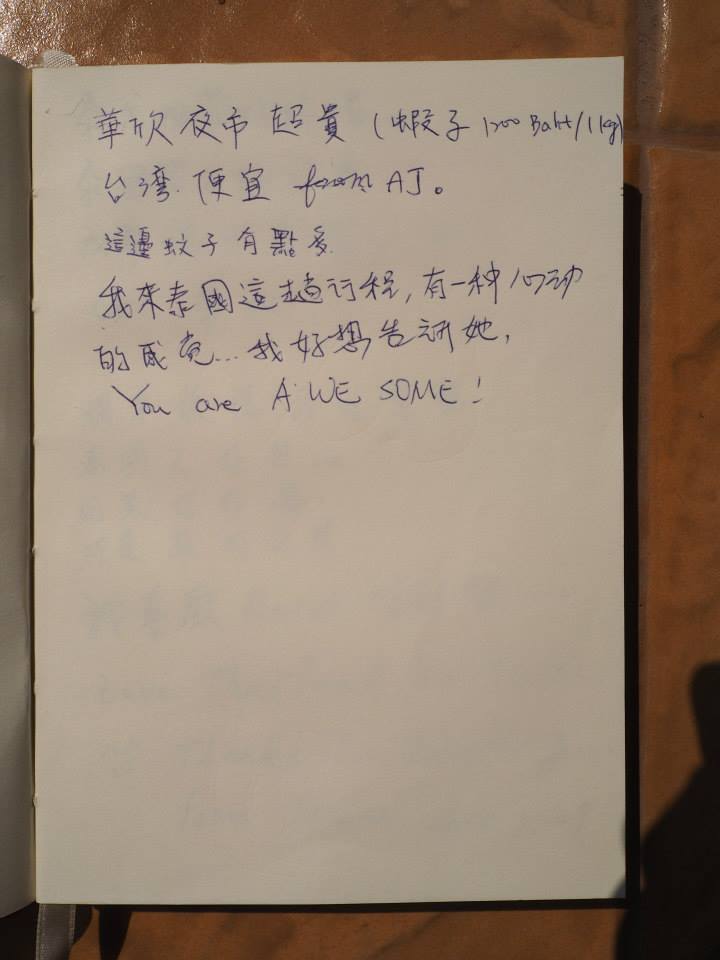 華欣夜市超貴（蝦子 1200 Baht/1kg)
台湾.便宜 from AJ。
這邊蚊子有點多.
我來泰國這趟行程,有一种心动
的感覚...我好想告訴她,
You are A WE SOME!